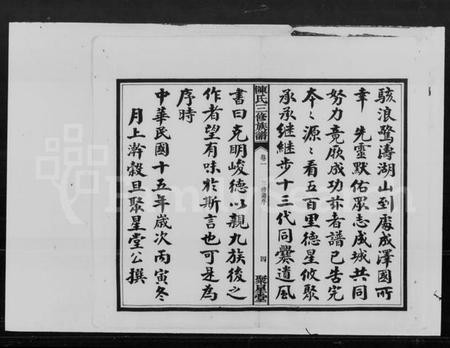 駭浪驚濤湖山到處成澤國所
幸　先靈默佑眾志成城共同
努力竟厥成功茲者譜已告完
本〻源〻看五百里德星攸聚
承承繼繼步十三代同爨遺風
陳氏三修族譜
卷一
四
聚星堂
書曰克明峻德以親九族後之
作者望有味於斯言也可是為
序時
中華民國十五年歲次丙寅冬
月上澣穀旦聚星堂公撰